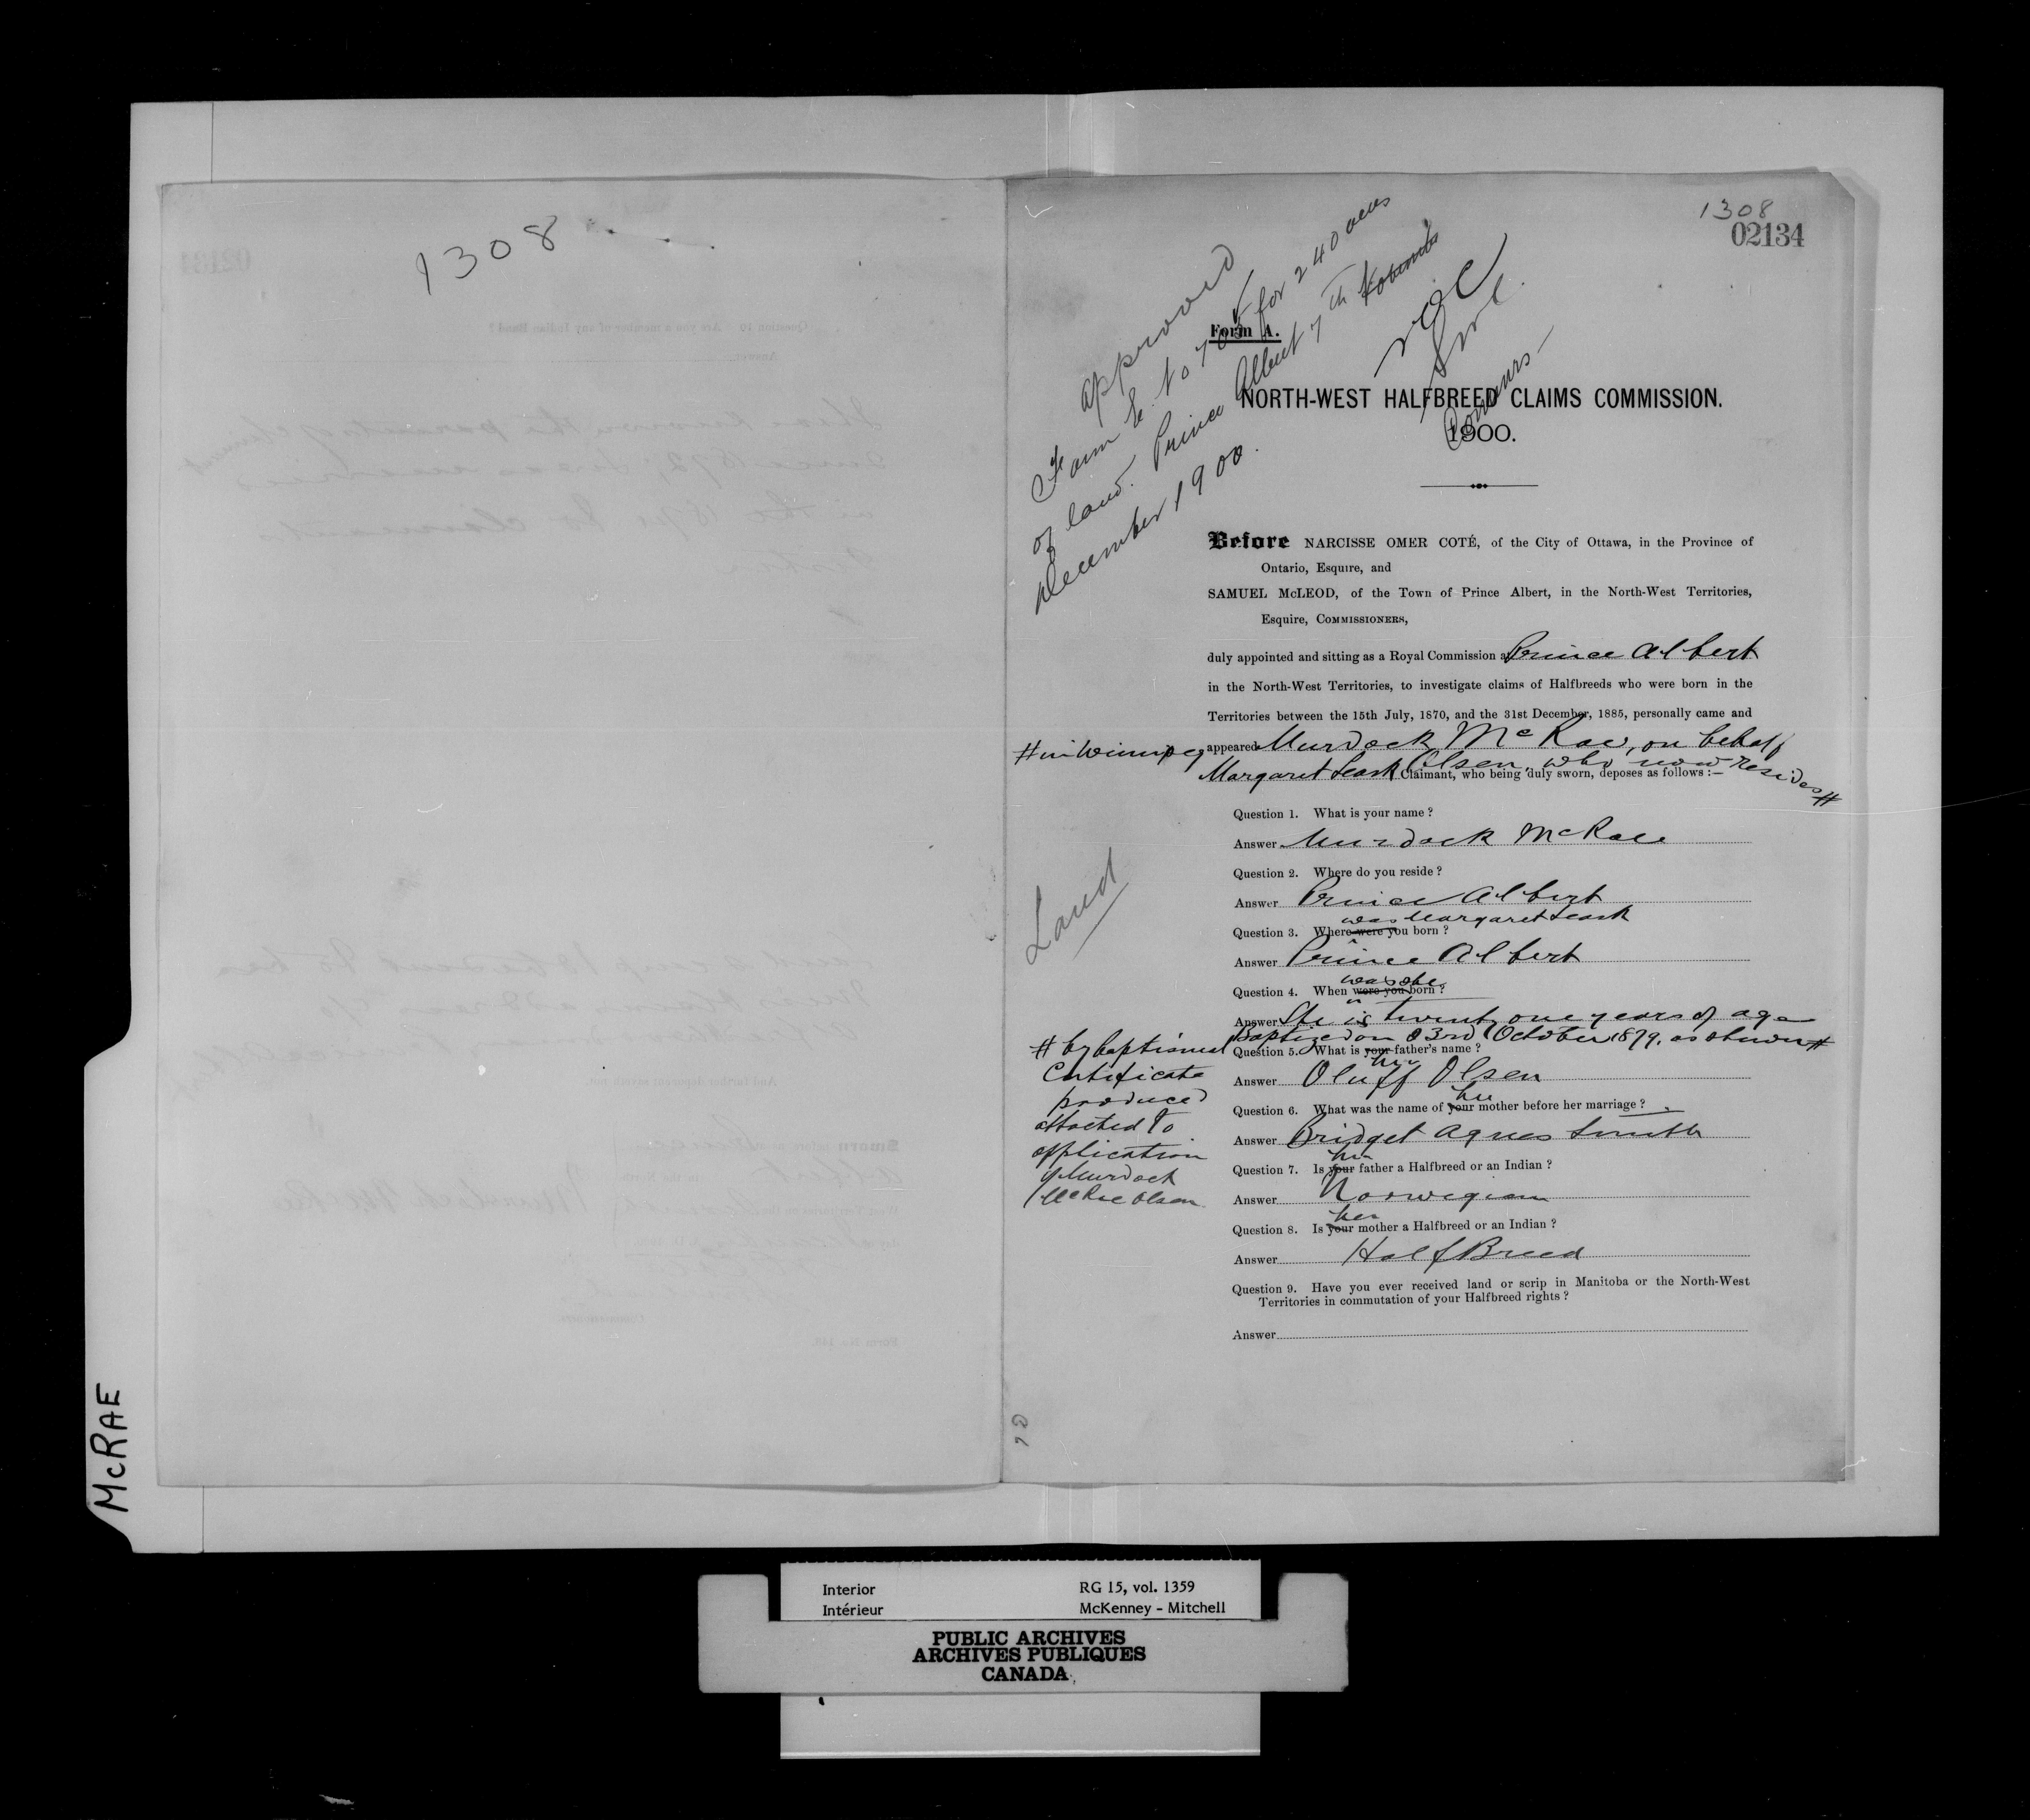 1308
1308
02134
Approved
Form E. No 705 for 240 acres
of land. Prince Albert 7th
December 1900.
NOC
Form A.
NORTH-WEST HALFBREED CLAIMS COMMISSION.
1900.
Before NARCISSE OMER COTÉ, of the City of Ottawa, in the Province of
Ontario, Esquire, and
SAMUEL McLEOD, of the Town of Prince Albert, in the North-West Territories,
Esquire, COMMISSIONERS,
duly appointed and sitting as a Royal Commission at Prince Albert
in the North-West Territories, to investigate claims of Halfbreeds who were born in the
Territories between the 15th July, 1870, and the 31st December, 1885, personally came and
# in Winnipeg
appeared Murdock McRae, on behalf
Margaret Leask Olsen, who now resides #
Claimant, who being duly sworn, deposes as follows :—
Question 1. What is your name ?
Answer Murdock McRae
Question 2. Where do you reside ?
Answer Prince Albert
was Margaret Leask
Question 3. Where were you born ?
Answer Prince Albert
was she
Question 4. When were you born ?
Answer She is twenty one years of age
Baptized on 23rd October 1879. as shown #
# by baptismal
Certificate
produced
attached to
application
of Murdock
McRae Olsen
Land
Question 5. What is your father's name ?
her
Answer Oluff Olsen
her
Question 6. What was the name of your mother before her marriage ?
Answer Bridget Agnes Smith
her
Question 7. Is your father a Halfbreed or an Indian ?
Answer Norwegian
her
Question 8. Is your mother a Halfbreed or an Indian ?
Answer Half Breed
Question 9. Have you ever received land or scrip in Manitoba or the North-West
Territories in commutation of your Halfbreed rights ?
Answer
McRAE
Interior
Intérieur
RG 15, vol. 1359
McKenney - Mitchell
PUBLIC ARCHIVES
ARCHIVES PUBLIQUES
CANADA